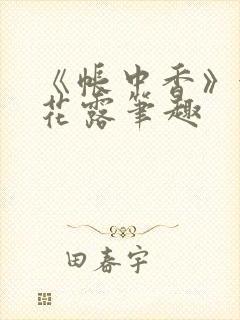 《帐中香》
花露笔趣
田春宇